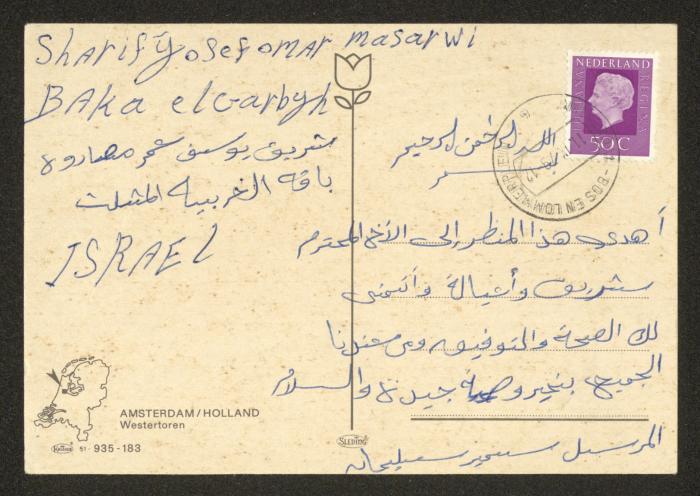 Sharif Yosef omar masarwi
BAKA elGarbyh
شريف يوسف عمر مصاروة
باقة الغربية المثلث
ISRAEL
AMSTERDAM/HOLLAND
Westertoren
51 - 935-183
SLEDING
NEDERLAND
JULIANA REGINA
50C
BOS EN LOMMERPLEIN
بسم الله الرحمن الرحيم
أهدي هذا المنظر إلى الأخ المحترم
شريف وأعيالة وأتمنى
لك الصحة والتوفيق ومن عندنا
الجميع بخير وصحة جيدة والسلام
المرسل سمير